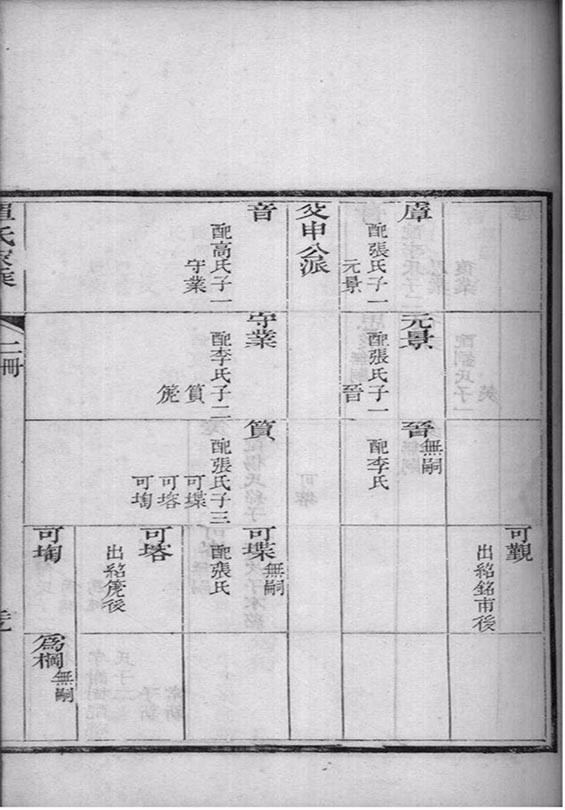 可觀
出紹銘甫後
庫
配張氏子一
元景
元景
配張氏子一
晉
晉
無嗣
配李氏
爻申公派
音
配高氏子一
守業
守業
配李氏子二
篔
箎
篔
配張氏子三
可堞
可塎
可埫
可堞
無嗣
配張氏
可塎
出紹箎後
可埫
為欄
無嗣
氏家乘
一冊